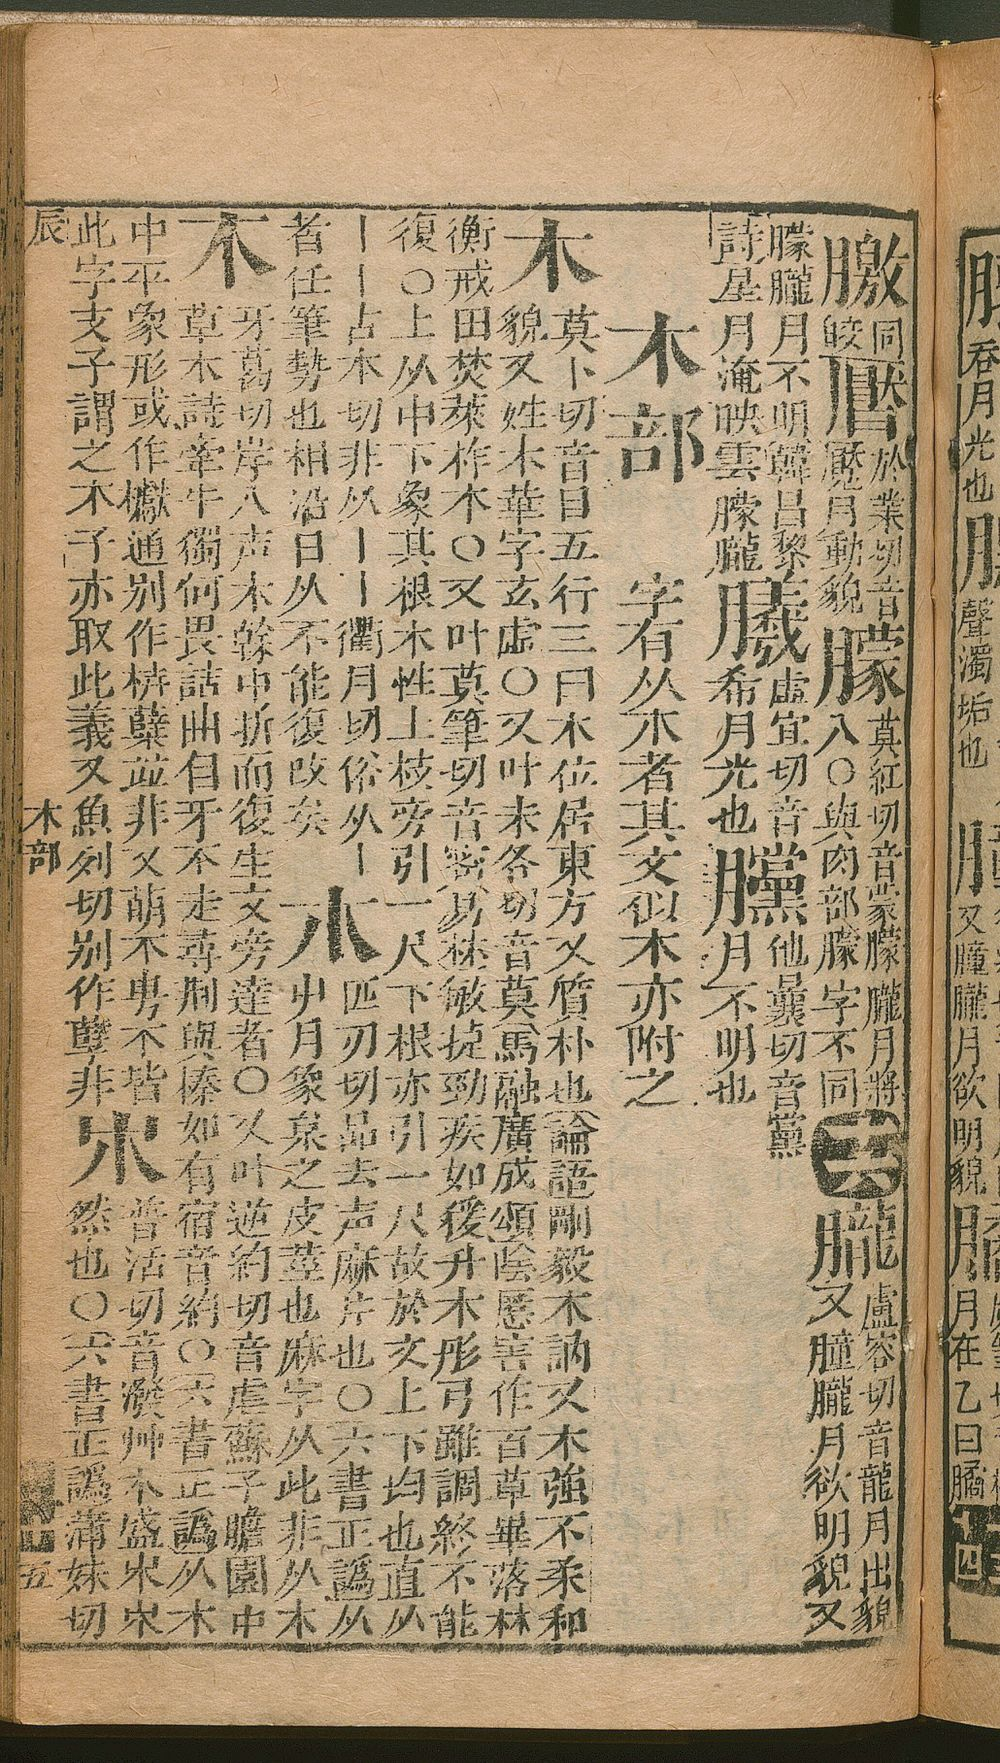 同皎
於業切音魘月動貌
朦 莫紅切音蒙朦朧月將入○與肉部朦字不同
十六
朧 盧容切音龍月出貌又朣朧月欲明貌又
朦朧月不明韓昌黎詩星月淹映雲朦朧
虛宜切音希月光也
他曩切音黨月不明也
木部 字有从木者其文似木亦附之
木 莫卜切音目五行三曰木位居東方又質朴也論語剛毅木訥又木強不柔和
貌又姓木華字玄虛○又叶末各切音莫馬融廣成頌陰慝害作百草畢落林
衡戒田焚萊柞木○又叶莫筆切音密易林敏捷勁疾如猨升木彤弓雖調終不能
復○上从中下象其根木性上枝旁引一尺下根亦引一尺故於文上下均也直从
丨丨占本切非从亅亅衢月切俗从亅
者任筆勢也相沿日久不能復改矣
朩 匹刃切品去声麻片也○六書正譌从
屮月象枲之皮莖也麻字从此非从木
不 牙葛切岸入声木榦中折而復生文旁達者○又叶逆約切音虐蘇子瞻園中
草木詩牽牛獨何畏詰曲自牙不走尋荆與榛如有宿音約○六書正譌从木
中平象形或作櫱通别作枿蘗並非又萌不甹不皆
此字支子謂之木子亦取此義又魚列切别作孼非
𣎵 普活切音潑艸木盛𣎵𣎵
然也○六書正譌蒲妹切
辰 木部 五
吞月光也
聲濁垢也
又朣朧月欲明貌
月在乙曰橘
十四